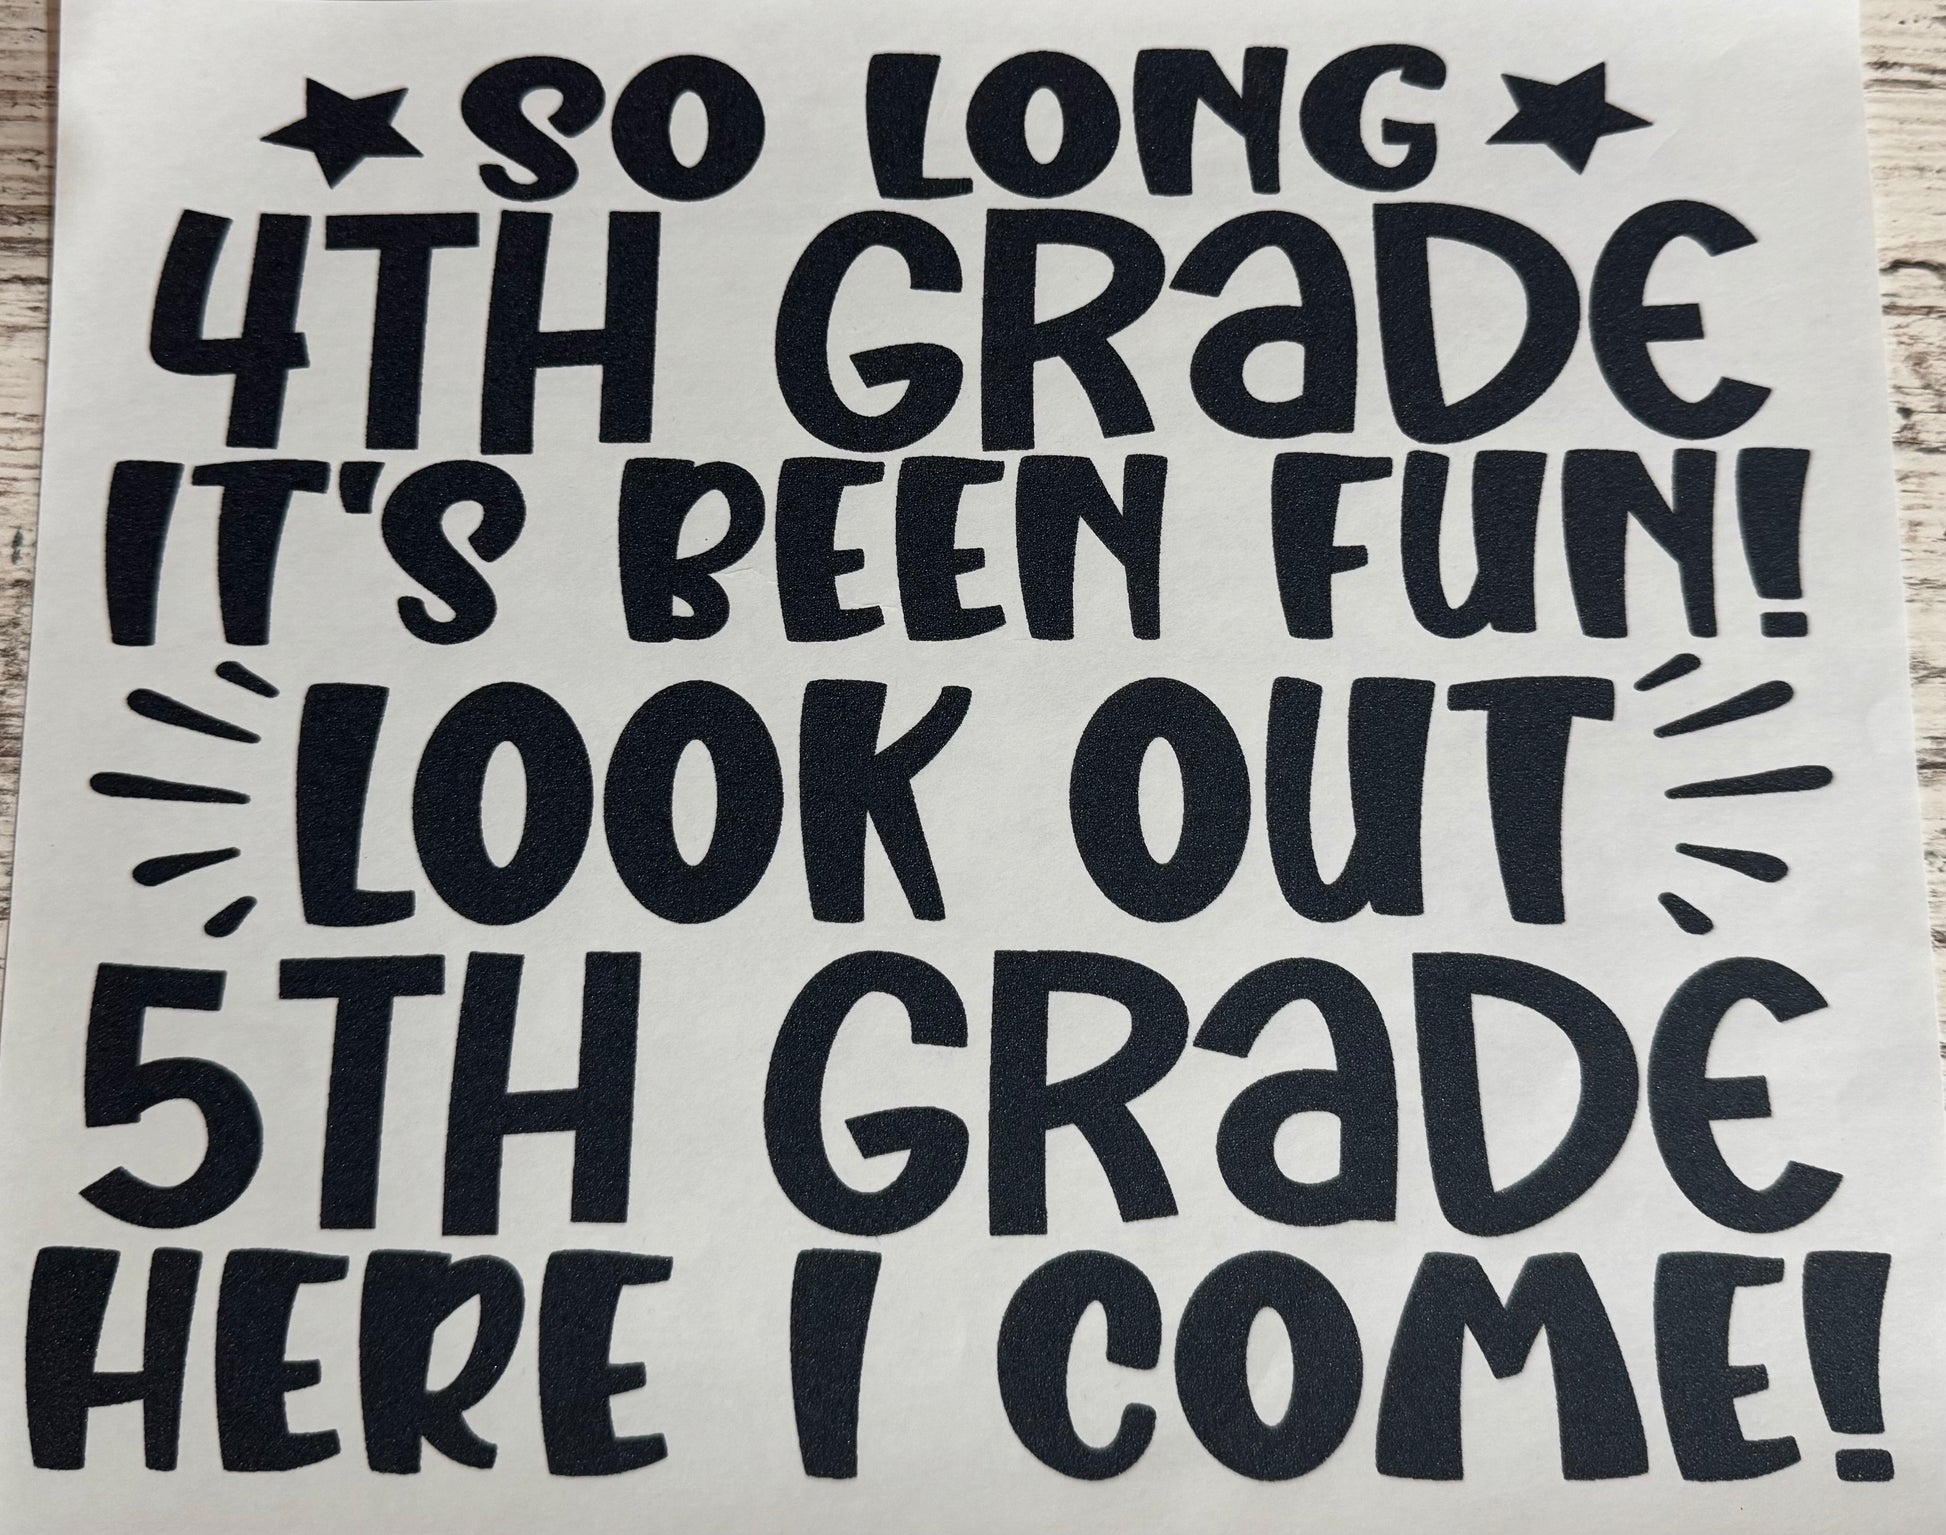 SO LONG
4TH GRADE
IT'S BEEN FUN!
LOOK OUT
5TH GRADE
HERE I COME!